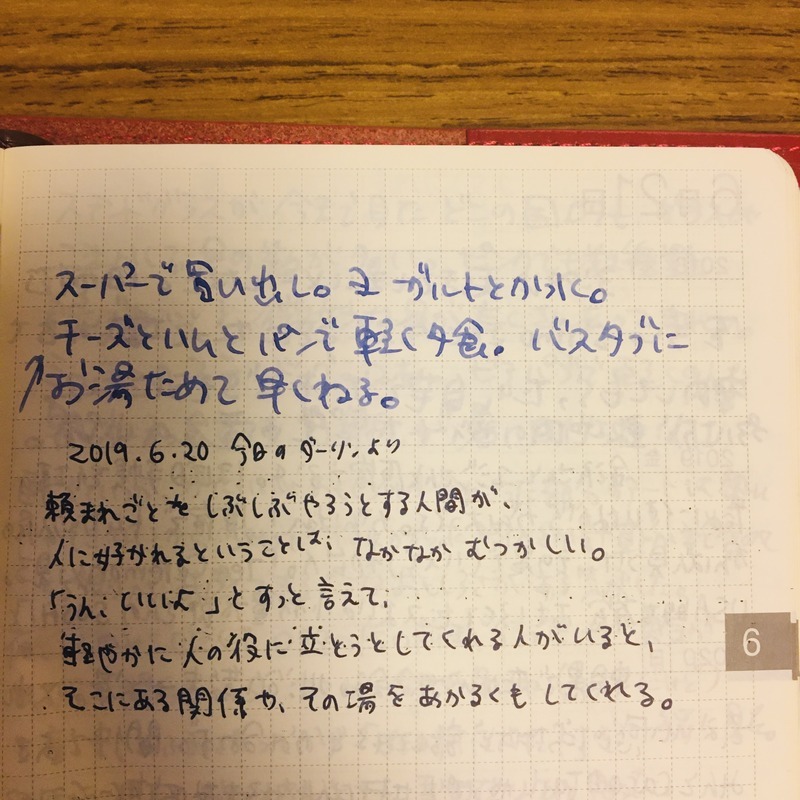 スーパーで買い出し。ヨーグルトとか氷。
チーズとハムとパンで軽く夕食。バスタブに
↑お湯ためて早くねる。
2019.6.20 今日のダーリンより
頼まれごとをしぶしぶやろうとする人間が、
人に好かれるということは、なかなかむつかしい。
「うん、いいよ」とすっと言えて、
軽やかに人の役に立とうとしてくれる人がいると、
そこにある関係や、その場をあかるくもしてくれる。
6